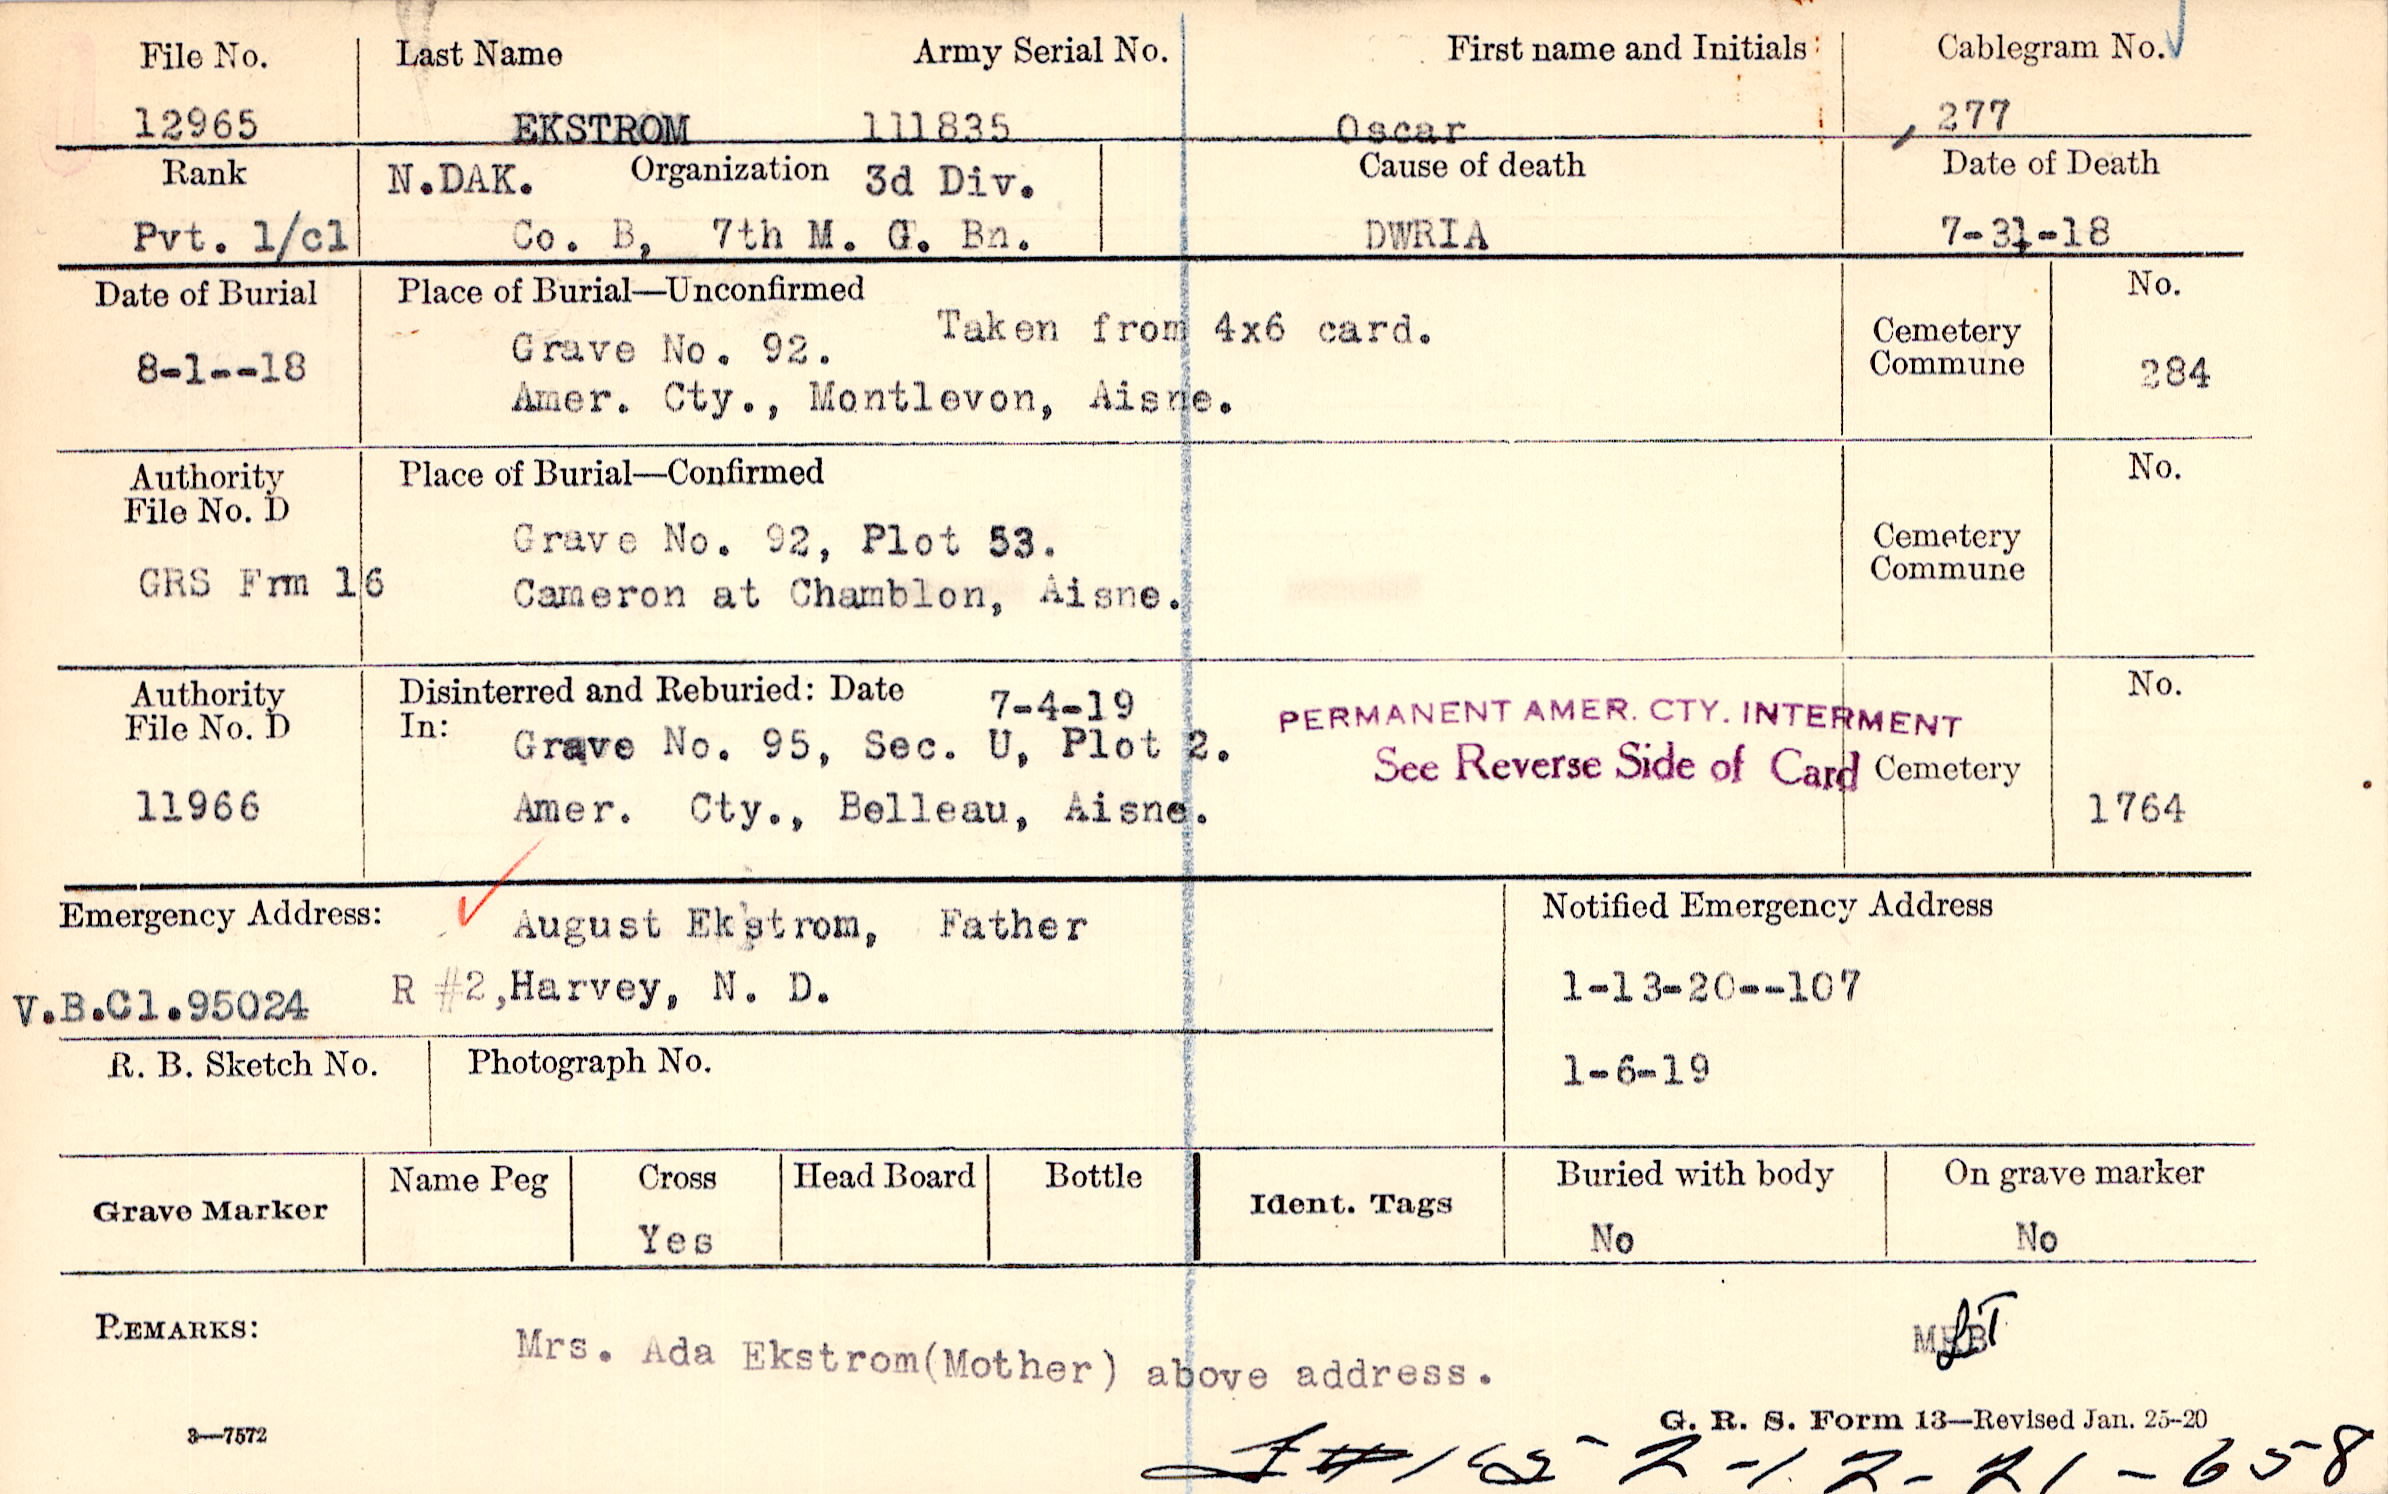 File No. Last Name Army Serial No. First name and Initials Cablegram No.
12965 EKSTROM 111835 Oscar 277
Rank N.DAK. Organization 3d Div. Cause of death Date of Death
Pvt. 1/cl Co. B, 7th M. G. Bn. DWRIA 7-31-18
Date of Burial Place of Burial—Unconfirmed No.
Taken from 4x6 card.
8-1--18 Grave No. 92. Cemetery
Commune 284
Amer. Cty., Montlevon, Aisne.
Authority Place of Burial—Confirmed No.
File No. D
Grave No. 92, Plot 53. Cemetery
Commune
GRS Frm 16 Cameron at Chamblon, Aisne.
Authority Disinterred and Reburied: Date 7-4-19 No.
File No. D In: Grave No. 95, Sec. U, Plot 2. PERMANENT AMER. CTY. INTERMENT
See Reverse Side of Card Cemetery
11966 Amer. Cty., Belleau, Aisne. 1764
Emergency Address: August Ekstrom, Father Notified Emergency Address
V.B.Cl.95024 R #2,Harvey, N. D. 1-13-20--107
R. B. Sketch No. Photograph No. 1-6-19
Grave Marker Name Peg Cross Head Board Bottle Ident. Tags Buried with body On grave marker
Yes No No
REMARKS: Mrs. Ada Ekstrom(Mother) above address.
3—7572 G. R. S. Form 13—Revised Jan. 25-20
2-12-21-658